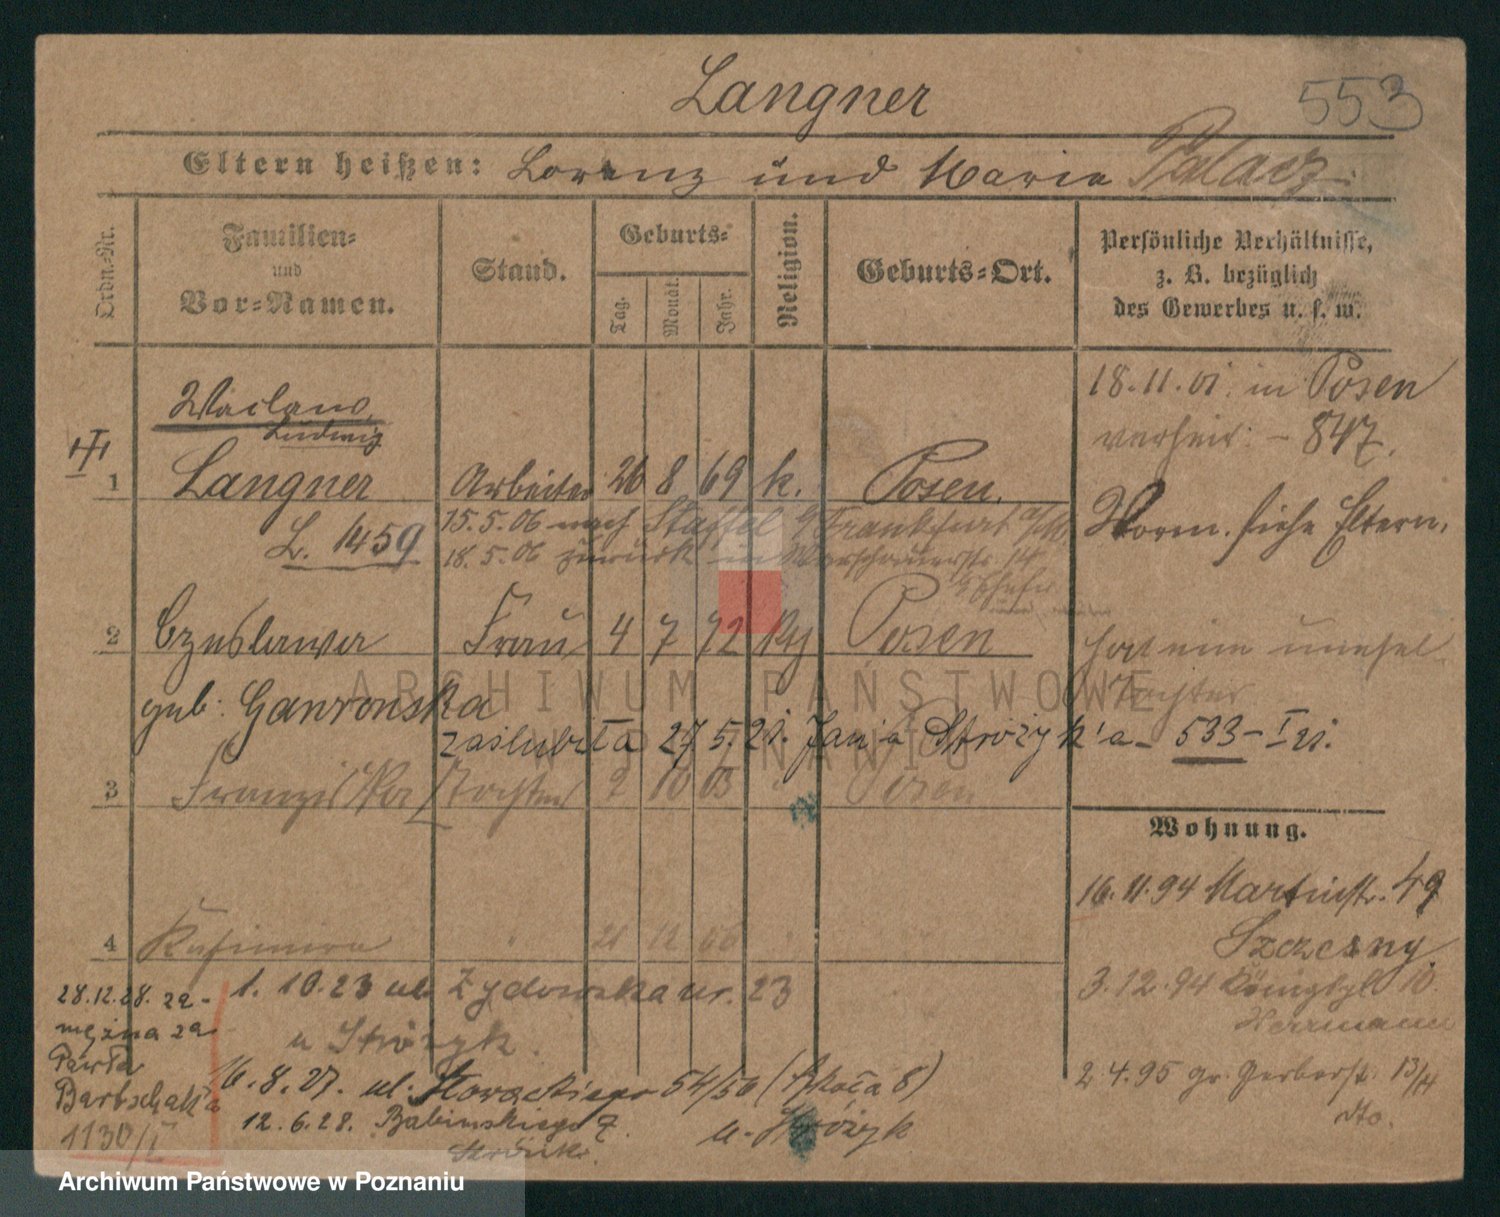 Langner
553
Eltern heißen: Lorenz und Maria Palacz
Ordn.-Nr.
Familien-
und
Vor-Namen.
Stand.
Geburts-
Tag.
Monat.
Jahr.
Religion.
Geburts-Ort.
Persönliche Verhältnisse,
z. B. bezüglich
des Gewerbes u. s. w.
18.11.01. in Posen
verheir: - 847.
Waclaw,
Ludwig
1 Langner Arbeiter 26 8 69 k. Posen.
Vorm. siehe Eltern.
L. 1459
15.5.06 nach Frankfurt a/M
18.5.06 zurück in Warschauerstr. 14
2 Czeslawa Frau 4 7 72 k Posen
hat eine unehel.
Tochter
geb: Gawronska
zaślubiła 27.5.21. Jan'a Stróżyk'a - 533 - I 21.
3 Franziska Tochter 2 10 03 " Posen
Wohnung.
16.11.94 Martinstr. 49
Szczesny
4 Kasimira " 21 12 06 "
3.12.94 Königspl. 10.
Herrmann
2.4.95 gr. Gerberstr. 13/14
dto.
1.10.23 ul. Żydowska nr. 23
u Stróżyk.
16.8.27. ul. Słowackiego 54/56
u. Stróżyk
12.6.28. Babinskiego 2
28.12.28. za-
mężna za
Pawła
Bartschak'a
1130/I
ARCHIWUM PAŃSTWOWE
W POZNANIU
Archiwum Państwowe w Poznaniu